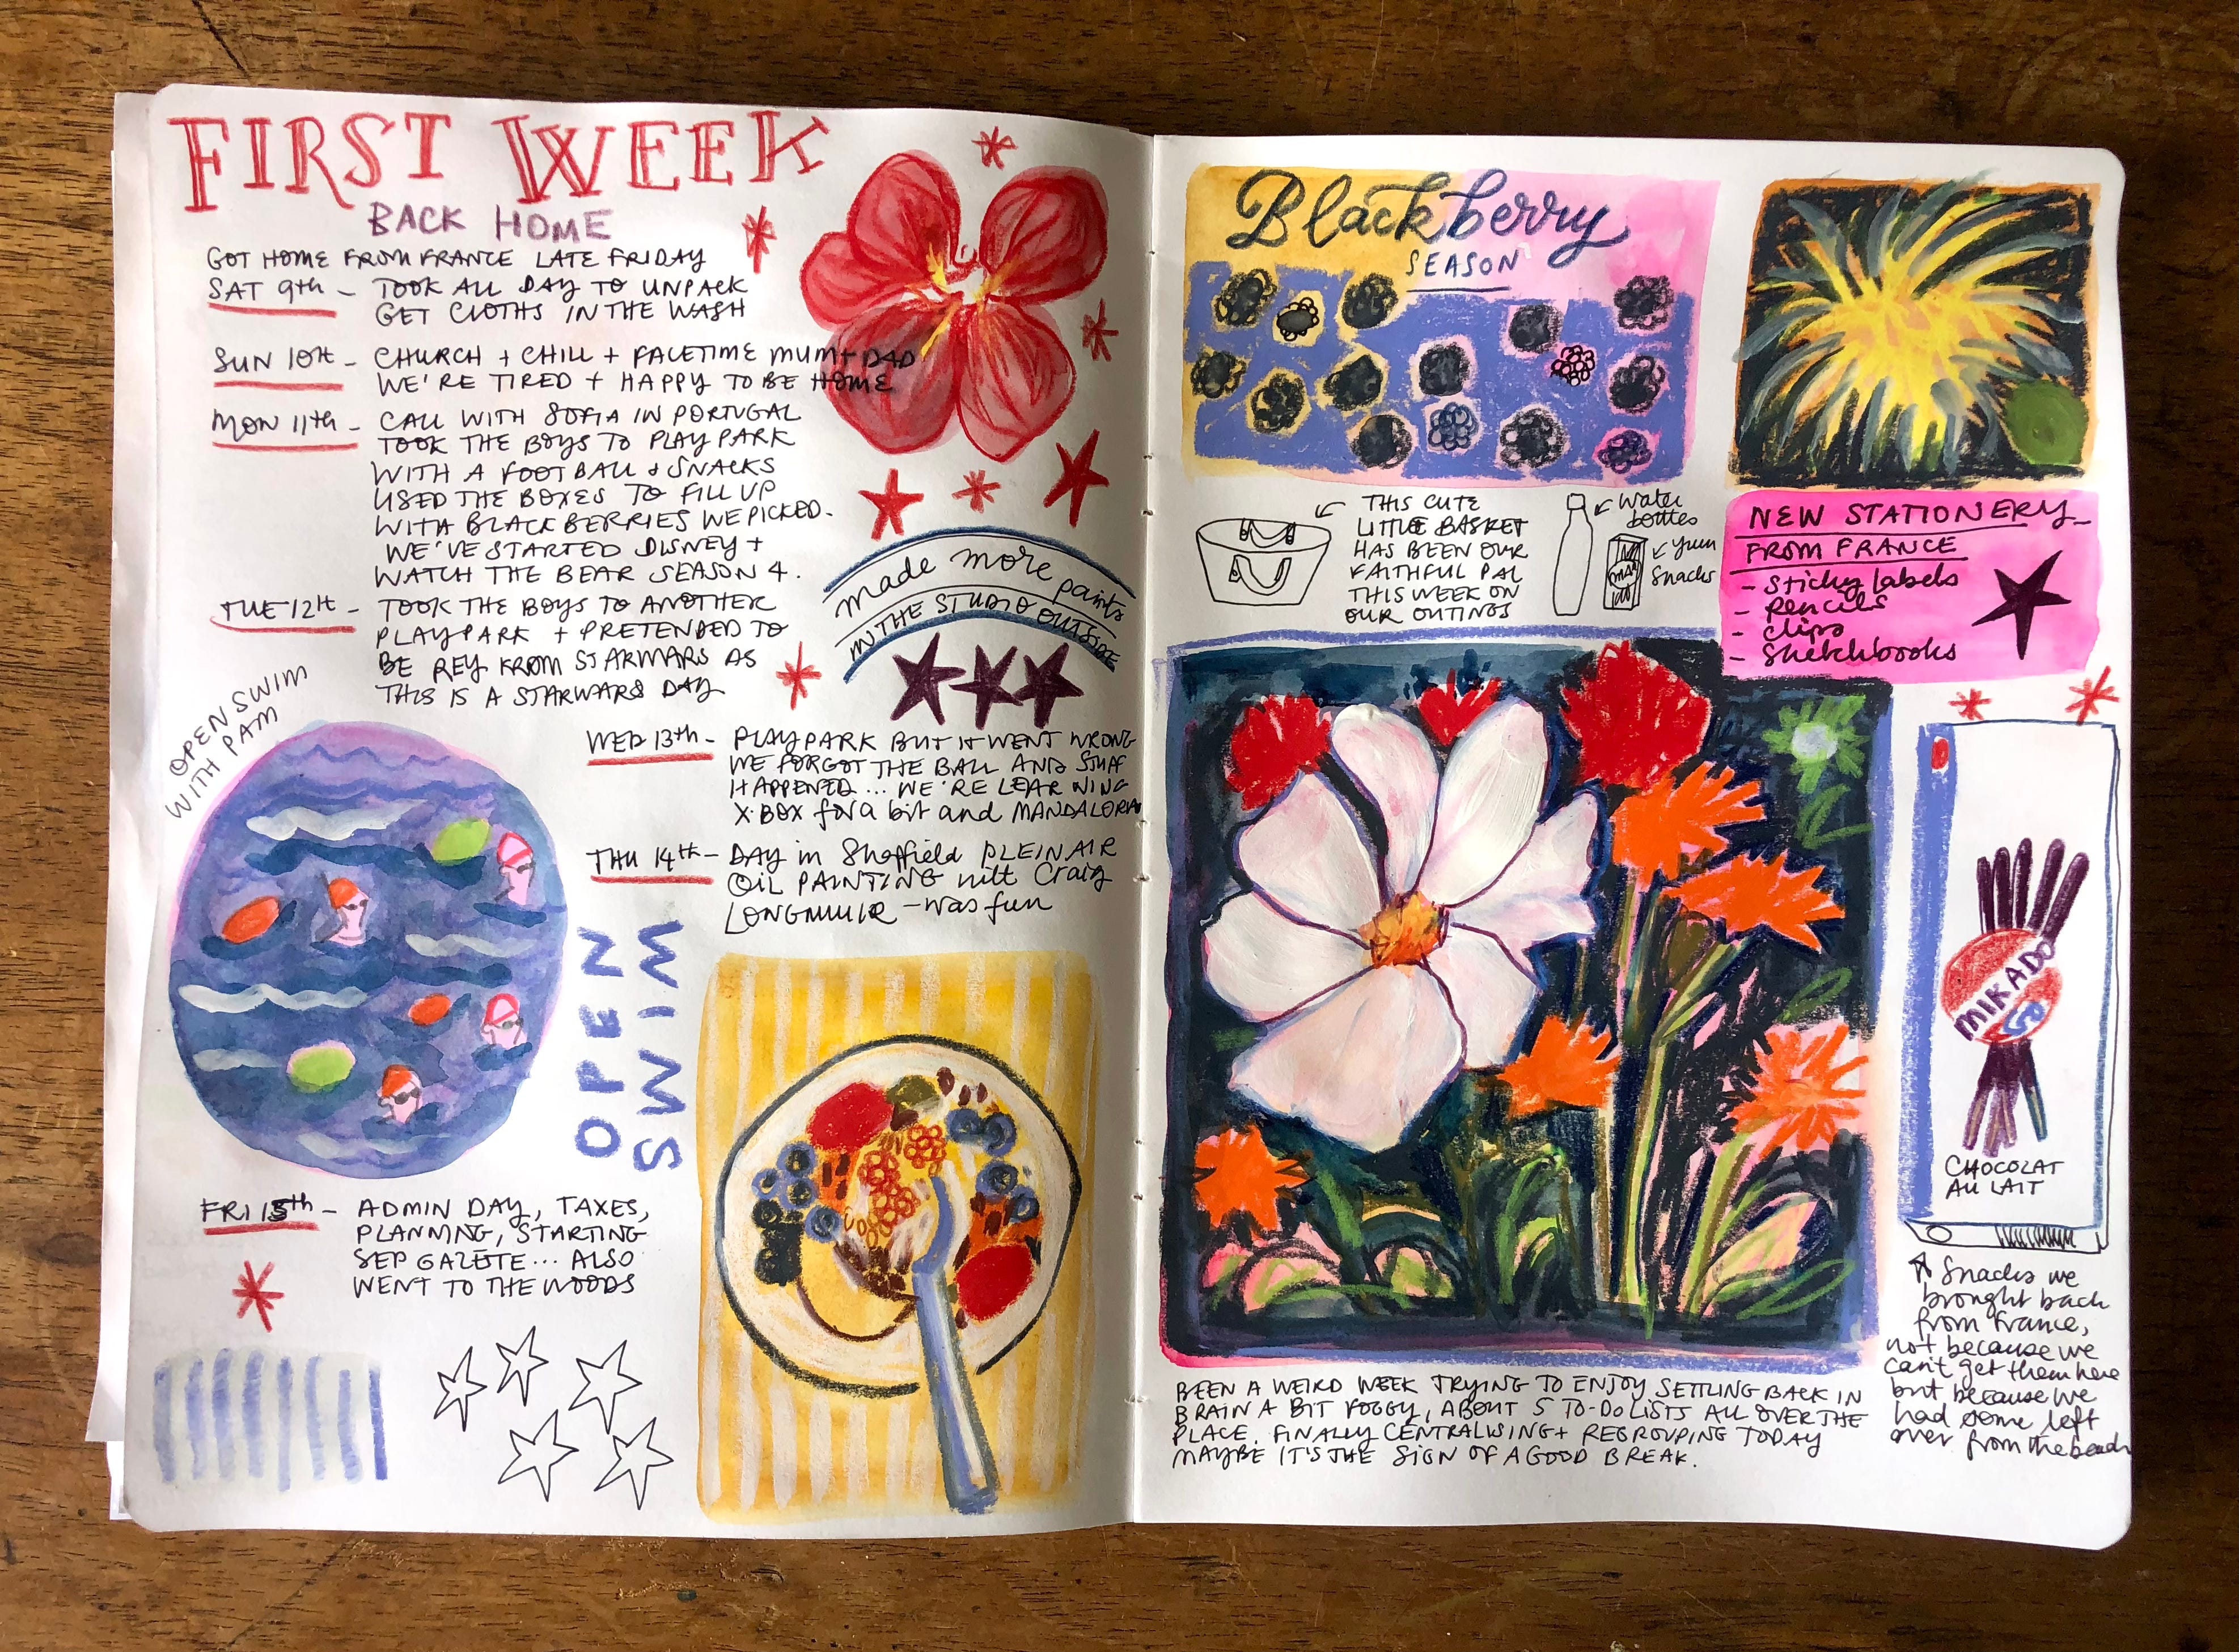 FIRST WEEK
BACK HOME
GOT HOME FROM FRANCE LATE FRIDAY
SAT 9th - TOOK ALL DAY TO UNPACK
GET CLOTHS IN THE WASH
SUN 10th - CHURCH + CHILL + FACETIME MUM + DAD
WE'RE TIRED + HAPPY TO BE HOME
MON 11th - CALL WITH SOFIA IN PORTUGAL
TOOK THE BOYS TO PLAY PARK
WITH A FOOTBALL + SNACKS
USED THE BOXES TO FILL UP
WITH BLACKBERRIES WE PICKED.
WE'VE STARTED DISNEY +
WATCH THE BEAR SEASON 4.
TUE 12th - TOOK THE BOYS TO ANOTHER
PLAYPARK + PRETENDED TO
BE REY FROM STARWARS AS
THIS IS A STARWARS DAY
made more paints
IN THE STUDIO OUTSIDE
OPEN SWIM
WITH PAM
WED 13th - PLAYPARK BUT IT WENT WRONG
WE FORGOT THE BALL AND STUFF
HAPPENED... WE'RE LEARNING
X-BOX for a bit and MANDALORIA
THU 14th - DAY in Sheffield PLEIN AIR
OIL PAINTING with Craig
LONGMUIR - was fun
OPEN
SWIM
FRI 15th - ADMIN DAY, TAXES,
PLANNING, STARTING
SEP GAZETE... ALSO
WENT TO THE WOODS
Blackberry
SEASON
THIS CUTE
LITTLE BASKET
HAS BEEN OUR
FAITHFUL PAL
THIS WEEK ON
OUR OUTINGS
Water
bottles
Yum
Snacks
NEW STATIONERY
FROM FRANCE
- Sticky labels
- pencils
- clips
- Sketchbooks
MIKADO
CHOCOLAT
AU LAIT
Snacks we
brought back
from France,
not because we
can't get them here
but because we
had some left
over from the beach
BEEN A WEIRD WEEK TRYING TO ENJOY SETTLING BACK IN
BRAIN A BIT FOGGY, ABOUT 5 TO-DO LISTS ALL OVER THE
PLACE. FINALLY CENTRALISING + REGROUPING TODAY
MAYBE IT'S THE SIGN OF A GOOD BREAK.